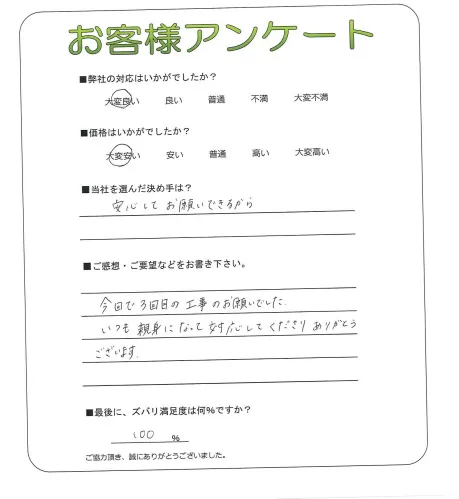 お客様アンケート
■弊社の対応はいかがでしたか？
大変良い 良い 普通 不満 大変不満
■価格はいかがでしたか？
大変安い 安い 普通 高い 大変高い
■当社を選んだ決め手は？
安心してお願いできるから
■ご感想・ご要望などをお書き下さい。
今回で3回目の工事のお願いでした.
いつも親身になって対応してくださりありがとう
ございます.
■最後に、ズバリ満足度は何％ですか？
100 ％
ご協力頂き、誠にありがとうございました。